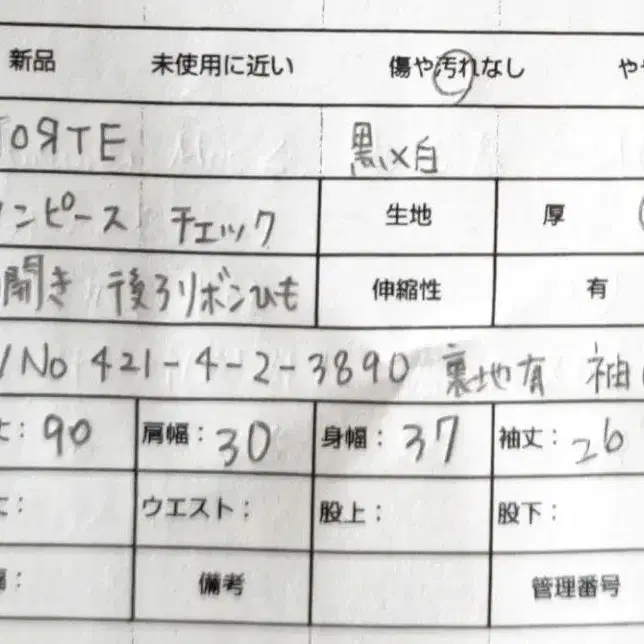 新品 未使用に近い 傷や汚れなし や
TOЯTE 黒×白
ワンピース チェック 生地 厚
開き 後ろリボンひも 伸縮性 有
No 421-4-2-3890 裏地有 袖
丈: 90 肩幅: 30 身幅: 37 袖丈: 26
丈: ウエスト: 股上: 股下:
幅: 備考 管理番号